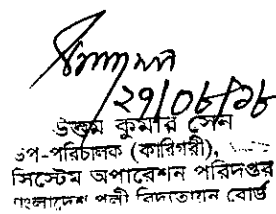 ২৭/০৮/১৮
উত্তম কুমার সেন
উপ-পরিচালক (কারিগরী),
সিস্টেম অপারেশন পরিদপ্তর
বাংলাদেশ পল্লী বিদ্যুতায়ন বোর্ড